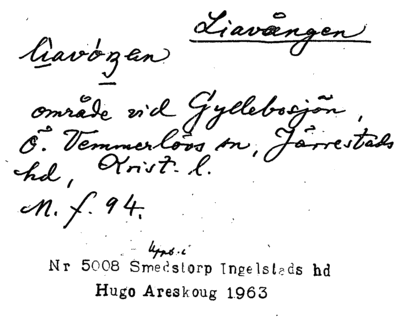 Liavången
liavóŋen
område vid Gyllebosjön,
Ö. Vemmerlövs sn, Järrestads
hd, Krist. l.
M. f. 94.
Uppt. i
Nr 5008 Smedstorp Ingelstads hd
Hugo Areskoug 1963